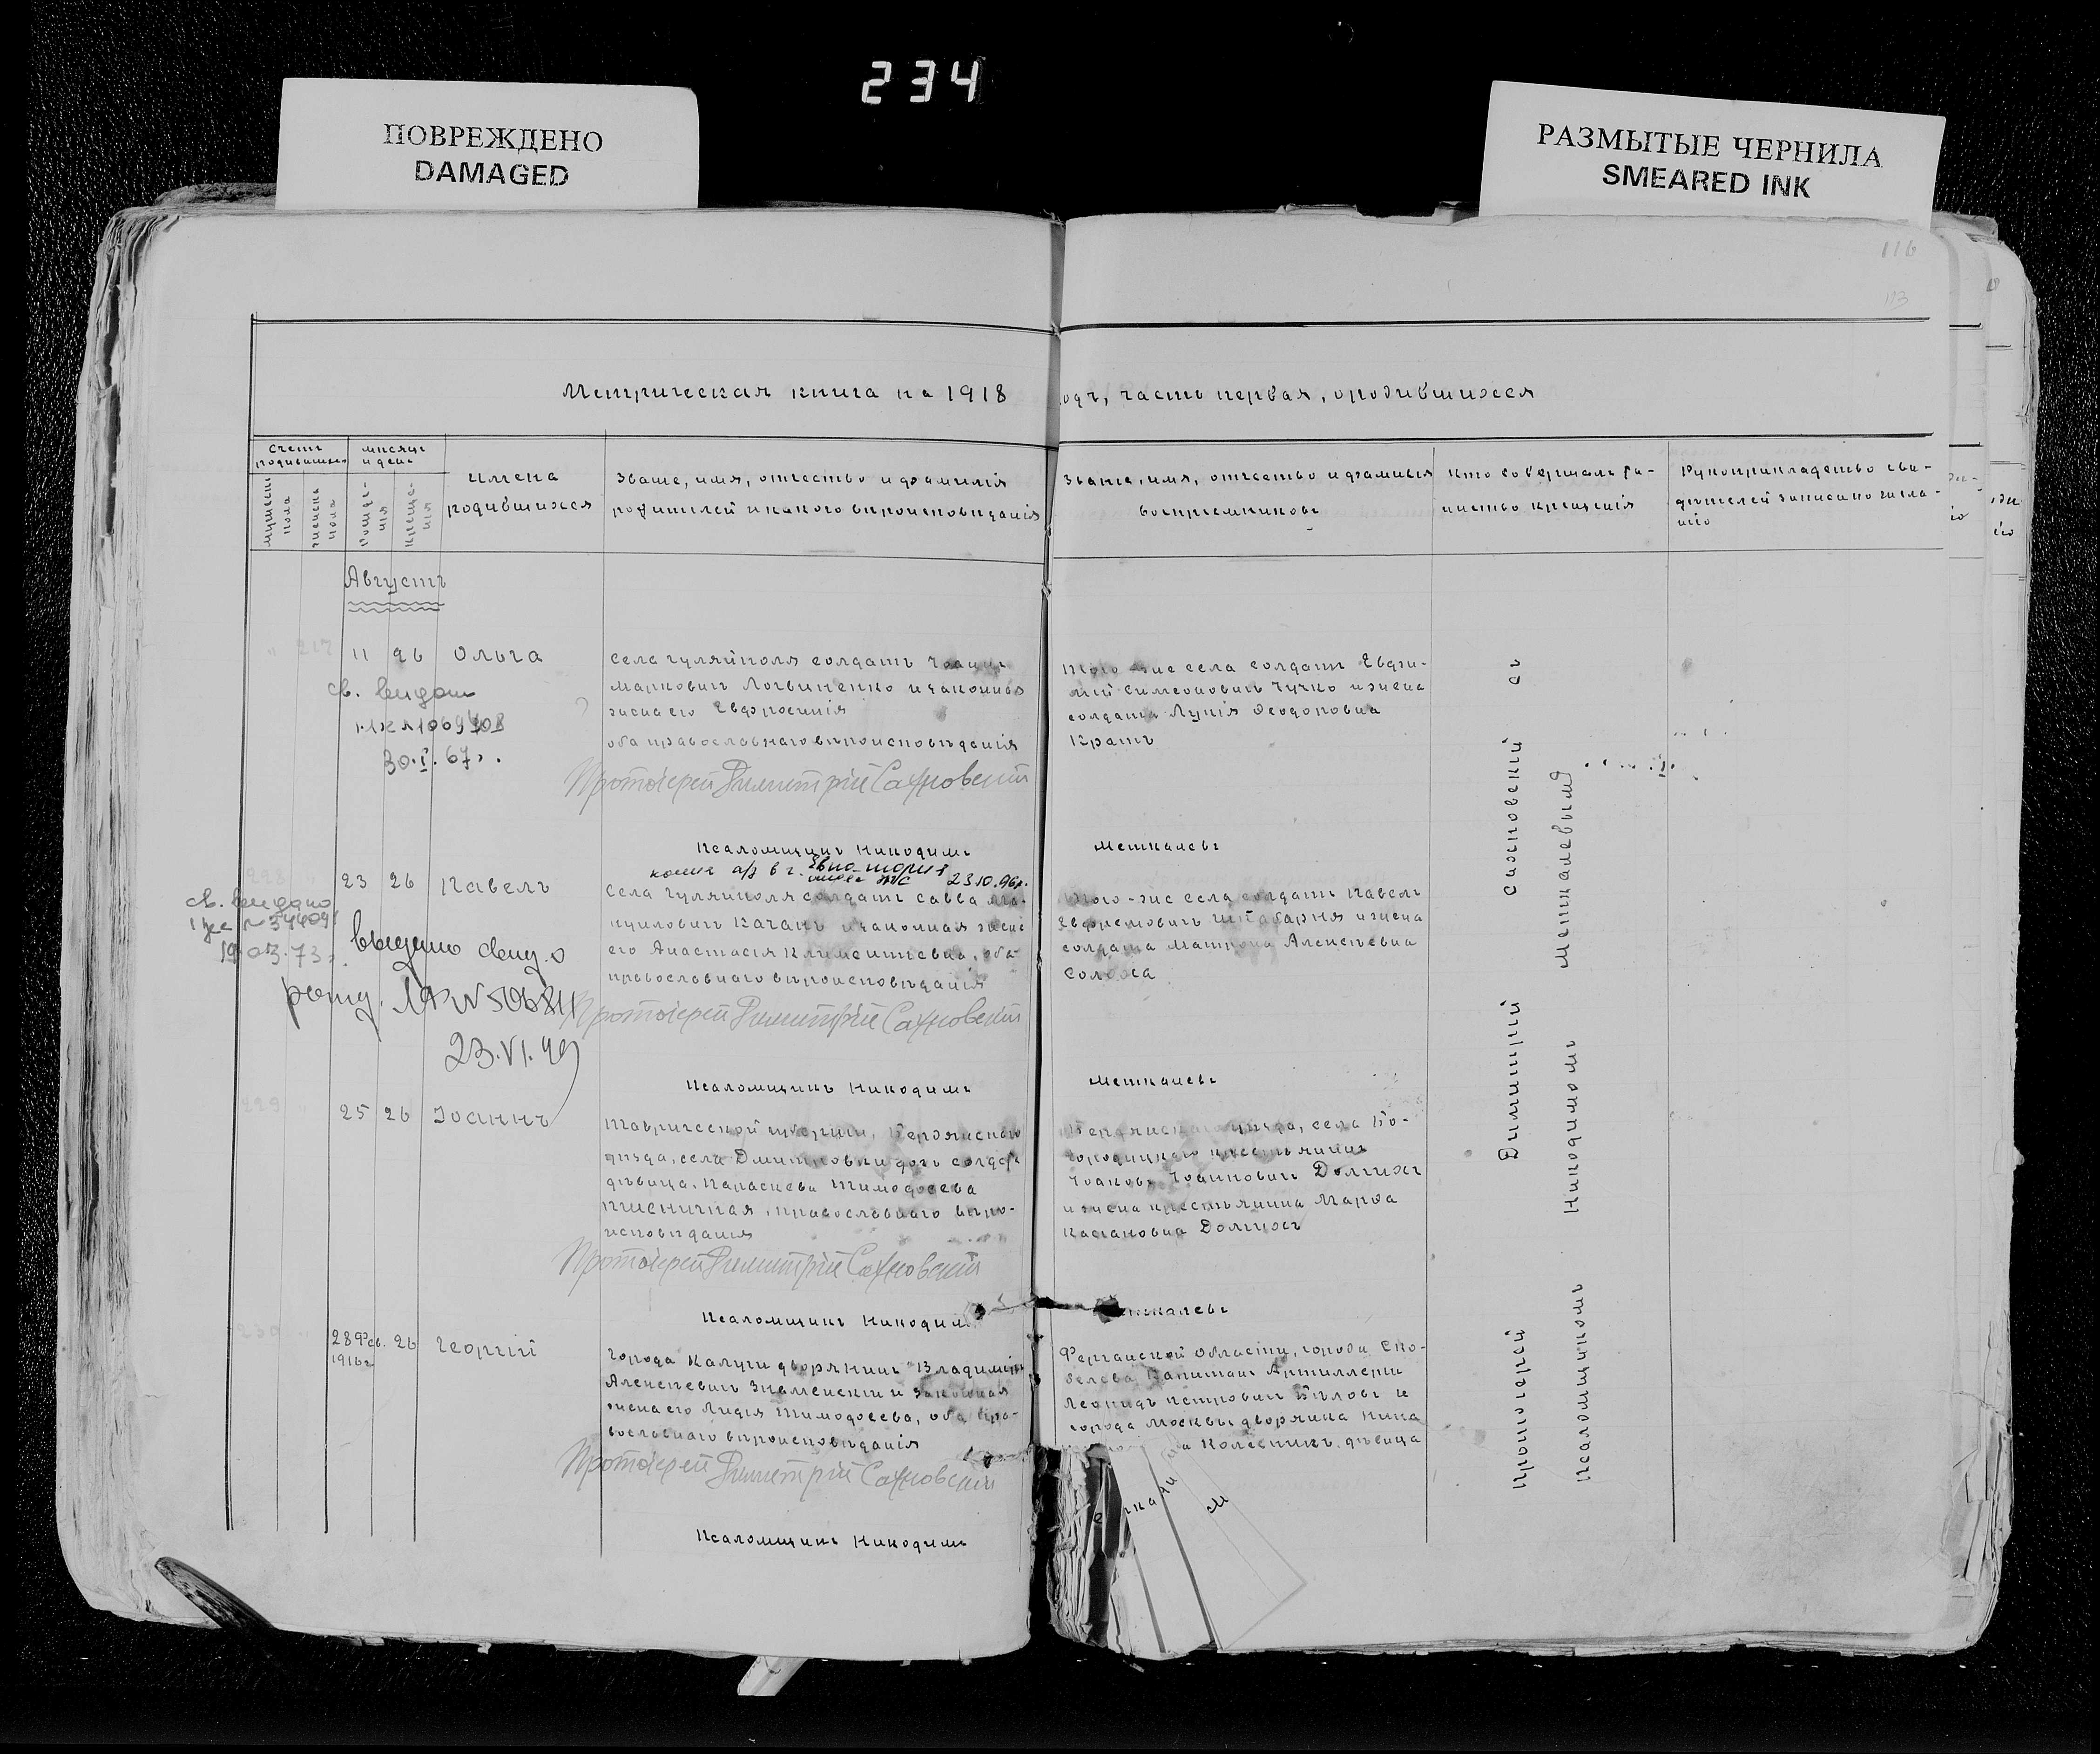 234
ПОВРЕЖДЕНО
DAMAGED
РАЗМЫТЫЕ ЧЕРНИЛА
SMEARED INK
116
113
Метрическая книга на 1918
годъ, часть первая, о родившихся
Счетъ родившихся
мѣсяцъ и день
мужеска пола
женска пола
рожденія
крещенія
имена
родившихся
Званіе, имя, отчество и фамилія
родителей и какого вѣроисповѣданія
Званіе, имя, отчество и фамилія
воспріемниковъ
Кто совершалъ та-
инство крещенія
Рукоприкладство сви-
дѣтелей записи по жела-
нію
Августъ
217 11 26 Ольга
св. выдан
30.I.67 г.
Села Гуляйполя солдатъ Іоаннъ
Марковичъ Логвиненко и законная
жена его Евфросинія
оба православнаго вѣроисповѣданія
Протоіерей Димитрій Сахновскій
Псаломщикъ Никодимъ
Того-же села солдатъ Евфи-
мій Симеоновичъ Чучко и жена
солдата Лукія Феодоровна
Кратъ
Меткалевъ
228 23 26 Павелъ
св. выдано
19.03.73 г.
выдано свид. о
рожд.
23.VI.49
копия а/з в г. Евпатория
23.10.96г.
Села Гуляйполя солдатъ Савва Ма-
нуиловичъ Качанъ и законная жена
его Анастасія Климентьевна, оба
православнаго вѣроисповѣданія
Протоіерей Димитрій Сахновскій
Псаломщикъ Никодимъ
Того-же села солдатъ Павелъ
солдата Матрона Алексѣевна
Меткалевъ
229 25 26 Іоаннъ
Таврической губерніи, Бердянскаго
уѣзда, села Дмитровки дочь солдата
дѣвица Параскева Тимофеева
Пшеничная, православнаго вѣро-
исповѣданія
Протоіерей Димитрій Сахновскій
Псаломщикъ Никодимъ
Бердянскаго уѣзда, села Бо-
городицкаго крестьянинъ
Іоаковъ Іоанновичъ Долгихъ
и жена крестьянина Марфа
Касьяновна Долгихъ
Меткалевъ
230 28 Фев. 26 Георгій
1916 г.
Города Калуги дворянинъ Владиміръ
Алексѣевичъ Знаменскій и законная
жена его Лидія Тимофеева, оба пра-
вославнаго вѣроисповѣданія
Протоіерей Димитрій Сахновскій
Псаломщикъ Никодимъ
Ферганской области, города Ско-
белева Капитанъ Артиллеріи
Леонидъ Петровичъ Бѣловъ и
города Москвы дворянка Нина
Колесникъ дѣвица
Протоіерей Димитрій Сахновскій съ
Псаломщикомъ Никодимомъ Меткалевымъ